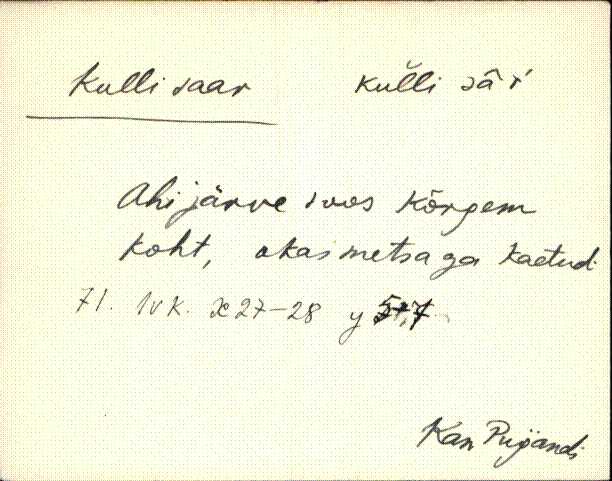 Kulli saar kul̆li sā́r
Ahijärve soos kõrgem
koht, okasmetsaga kaetud.
71. lvk. x 27-28 y
Kan